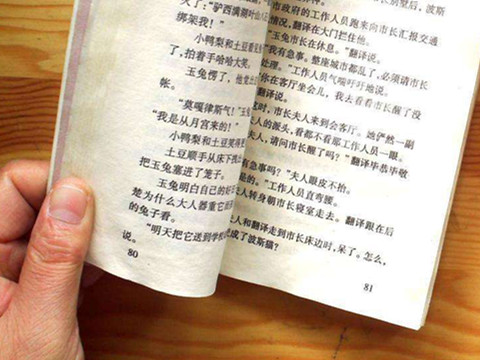 了："驴西满
绑架我！"
小鸭梨和土豆
了，拍着手哈哈大笑。
玉兔愣了，他觉
帐。
"莫嘎律斯气！"玉兔
"我是从月宫来的！"
小鸭梨和土豆笑得
土豆顺手从床下
把玉兔塞进了笼子。
玉兔明白自己的
楚为什么大人器重
的兔子看。
"明天把它送到学校
说。
80
别墅后，波斯
市政府的工作人员跑来向市长汇报交通
情况，翻译在大门拦住他。
"玉兔市长在休息。"翻译说。
"我有急事。整座城市都乱了，必须请市长
处理。"工作人员气喘吁吁地说。
"你在客厅坐会儿，我去看看市长醒了没
翻译说。
时，市长夫人来到会客厅。她俨然一副
夫人的派头，看都不看那工作人员一眼。
夫人，请问市长醒了吗？"翻译毕恭毕敬
有急事吗？"夫人眼皮不抬。
是的。"工作人员直弯腰。
夫人转身朝市长寝室走去。翻译跟在后
人和翻译走到市长床边时，呆了。怎么，
成了波斯猫？
81